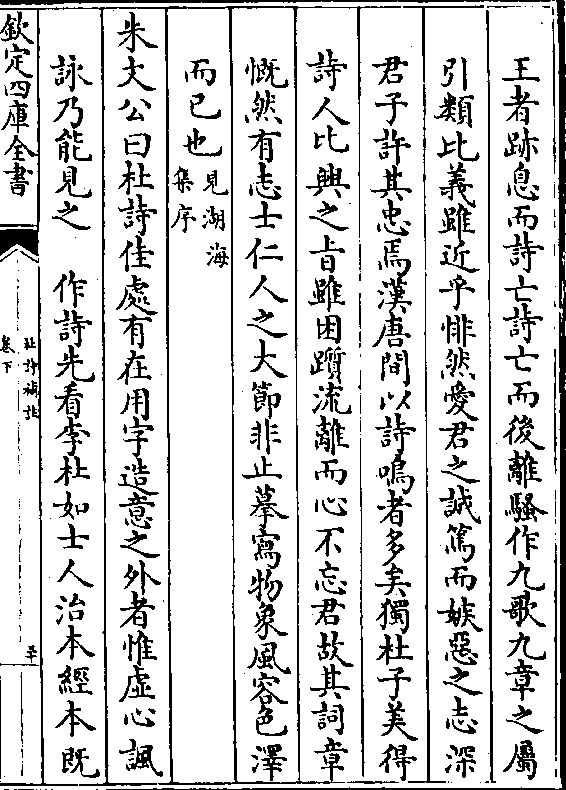 王者跡息而詩亡詩亡而後離騷作九歌九章之屬
引類比義雖近乎悱然愛君之誠篤而嫉惡之志深
君子許其忠焉漢唐間以詩鳴者多矣獨杜子美得
詩人比興之旨雖困躓流離而心不忘君故其詞章
慨然有志士仁人之大節非止摹寫物象風容色澤
而已也見湖海
集序
朱文公曰杜詩佳處有在用字造意之外者惟虛心諷
詠乃能見之　作詩先看李杜如士人治本經本既
欽定四庫全書
卷下